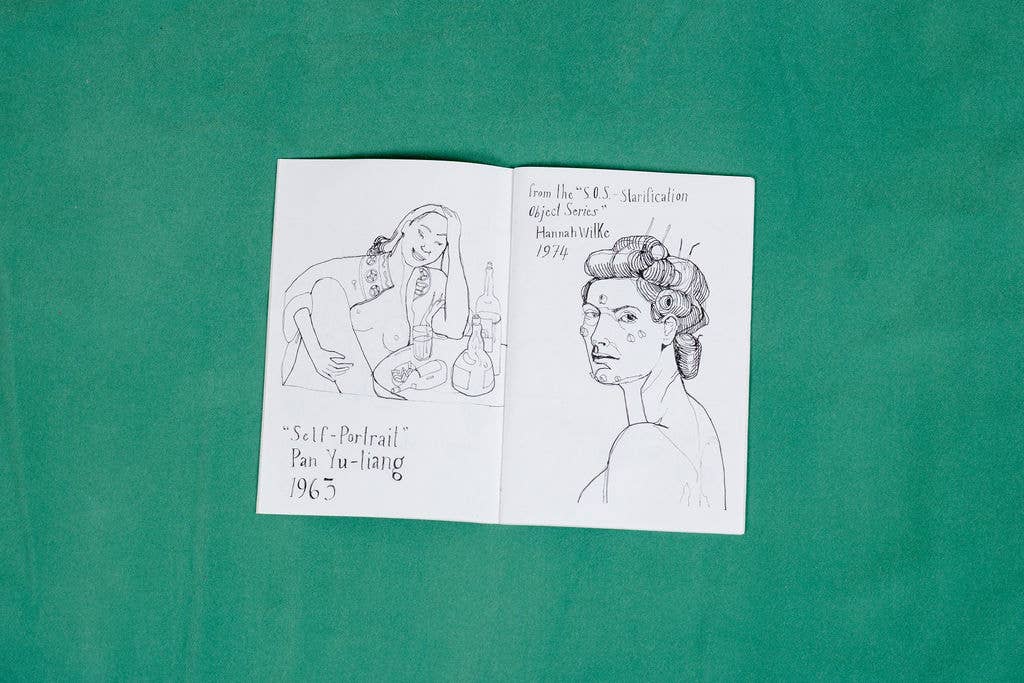 "Self-Portrait"
Pan Yu-liang
1963
from the "S.O.S.-Starification
Object Series"
Hannah Wilke
1974